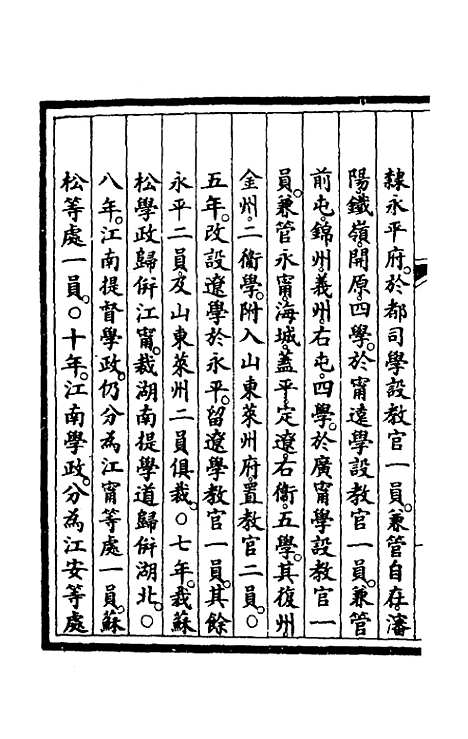 隸永平府。於都司學設教官一員。兼管自在。瀋
陽。鐵嶺。開原。四學。於甯遠學設教官一員。兼管
前屯。錦州。義州。右屯。四學。於廣甯學設教官一
員。兼管永甯。海城。蓋平。定遼。右衞。五學。其復州。
金州。二衞學。附入山東萊州府。置教官二員。○
五年。改設遼學於永平。留遼學教官一員。其餘
永平二員。及山東萊州二員俱裁。○七年。裁蘇
松學政歸併江甯。裁湖南提學道歸併湖北。○
八年。江南提督學政。仍分為江甯等處一員。蘇
松等處一員。○十年。江南學政。分為江安等處